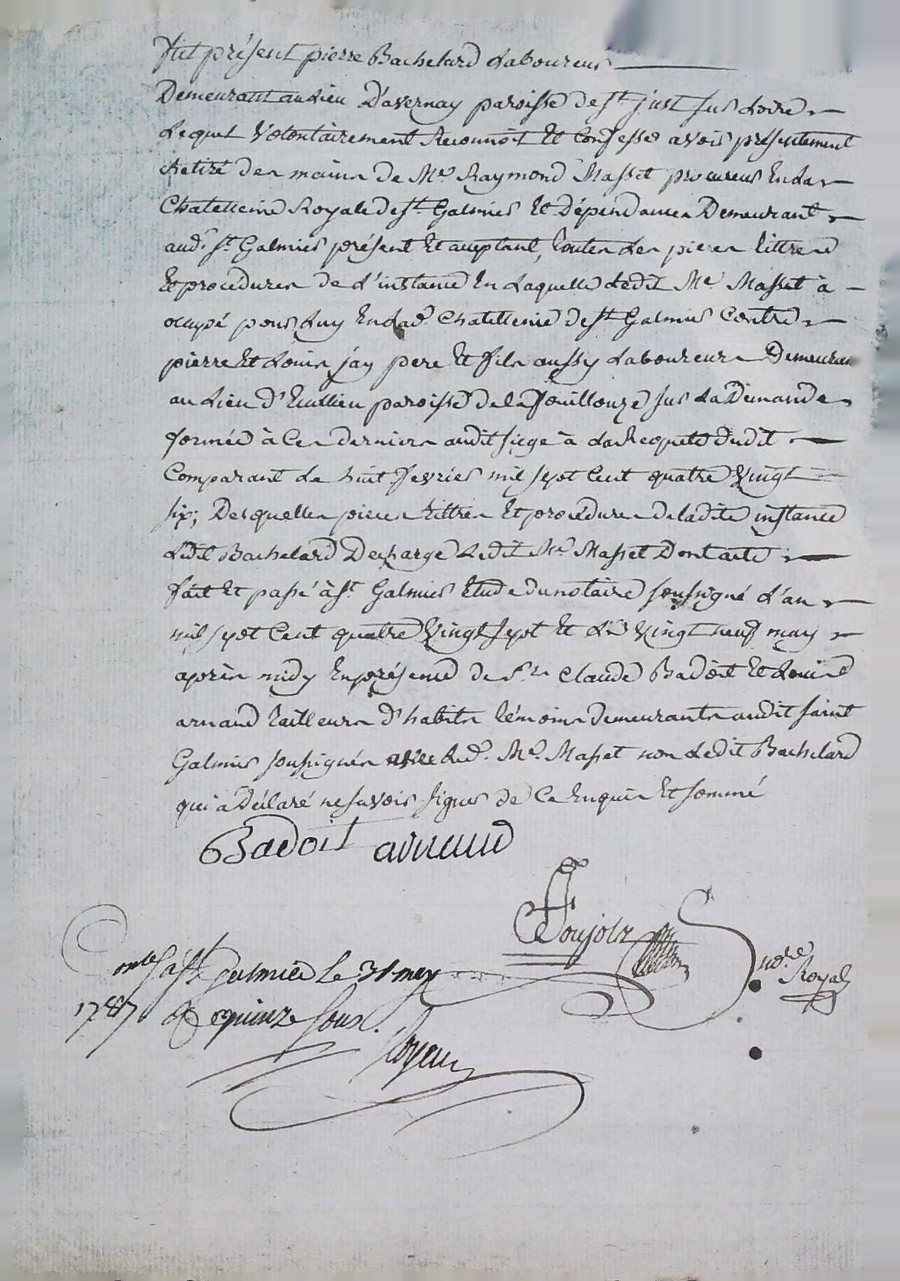 fut présent pierre Bachelard Laboureur
Demeurant au Lieu D'avernay paroisse de St. just sur Loire
Lequel Volontairement Reconnoit Et Confesse avoir présentement
Retiré des mains de Me. Raymond Masset procureur En La
Chatellenie Royale de St. Galmier Et Dépendances Demeurant
aud. St. Galmier présent Et acceptant, toutes Les pieces tittres
Et procédures de L'instance En Laquelle Ledit Me Masset à
occupé pour Luy En Lad. Chatellenie de St Galmier Contre
pierre Et Louis jay pere Et fils aussy Laboureurs Demeurant
au Lieu d'Eculieu paroisse de la fouillouze sur La Demande
formée à Ces derniers audit siege à La Requete dudit
Comparant Le huit fevrier mil sept Cent quatre Vingt
six; Desquelles pieces tittres Et procédures de Ladite instance
Ledit Bachelard Decharge Ledit Me. Masset Dont acte
fait Et passé à St Galmier Etude du notaire soussigné L'an
mil sept Cent quatre Vingt sept Et Le Vingt neuf may
après midy En présence de Srs Claude Badoit Et Louis
arnaud tailleurs d'habits témoins demeurants audit saint
Galmier soussignés avec Led. Me. Masset non Ledit Bachelard
qui à Déclaré ne savoir signer de Ce Enquis Et sommé
Badoit arnaud
ndre
Royal
Contlé à St. Galmier Le 31 may
1787 R quinze sous.